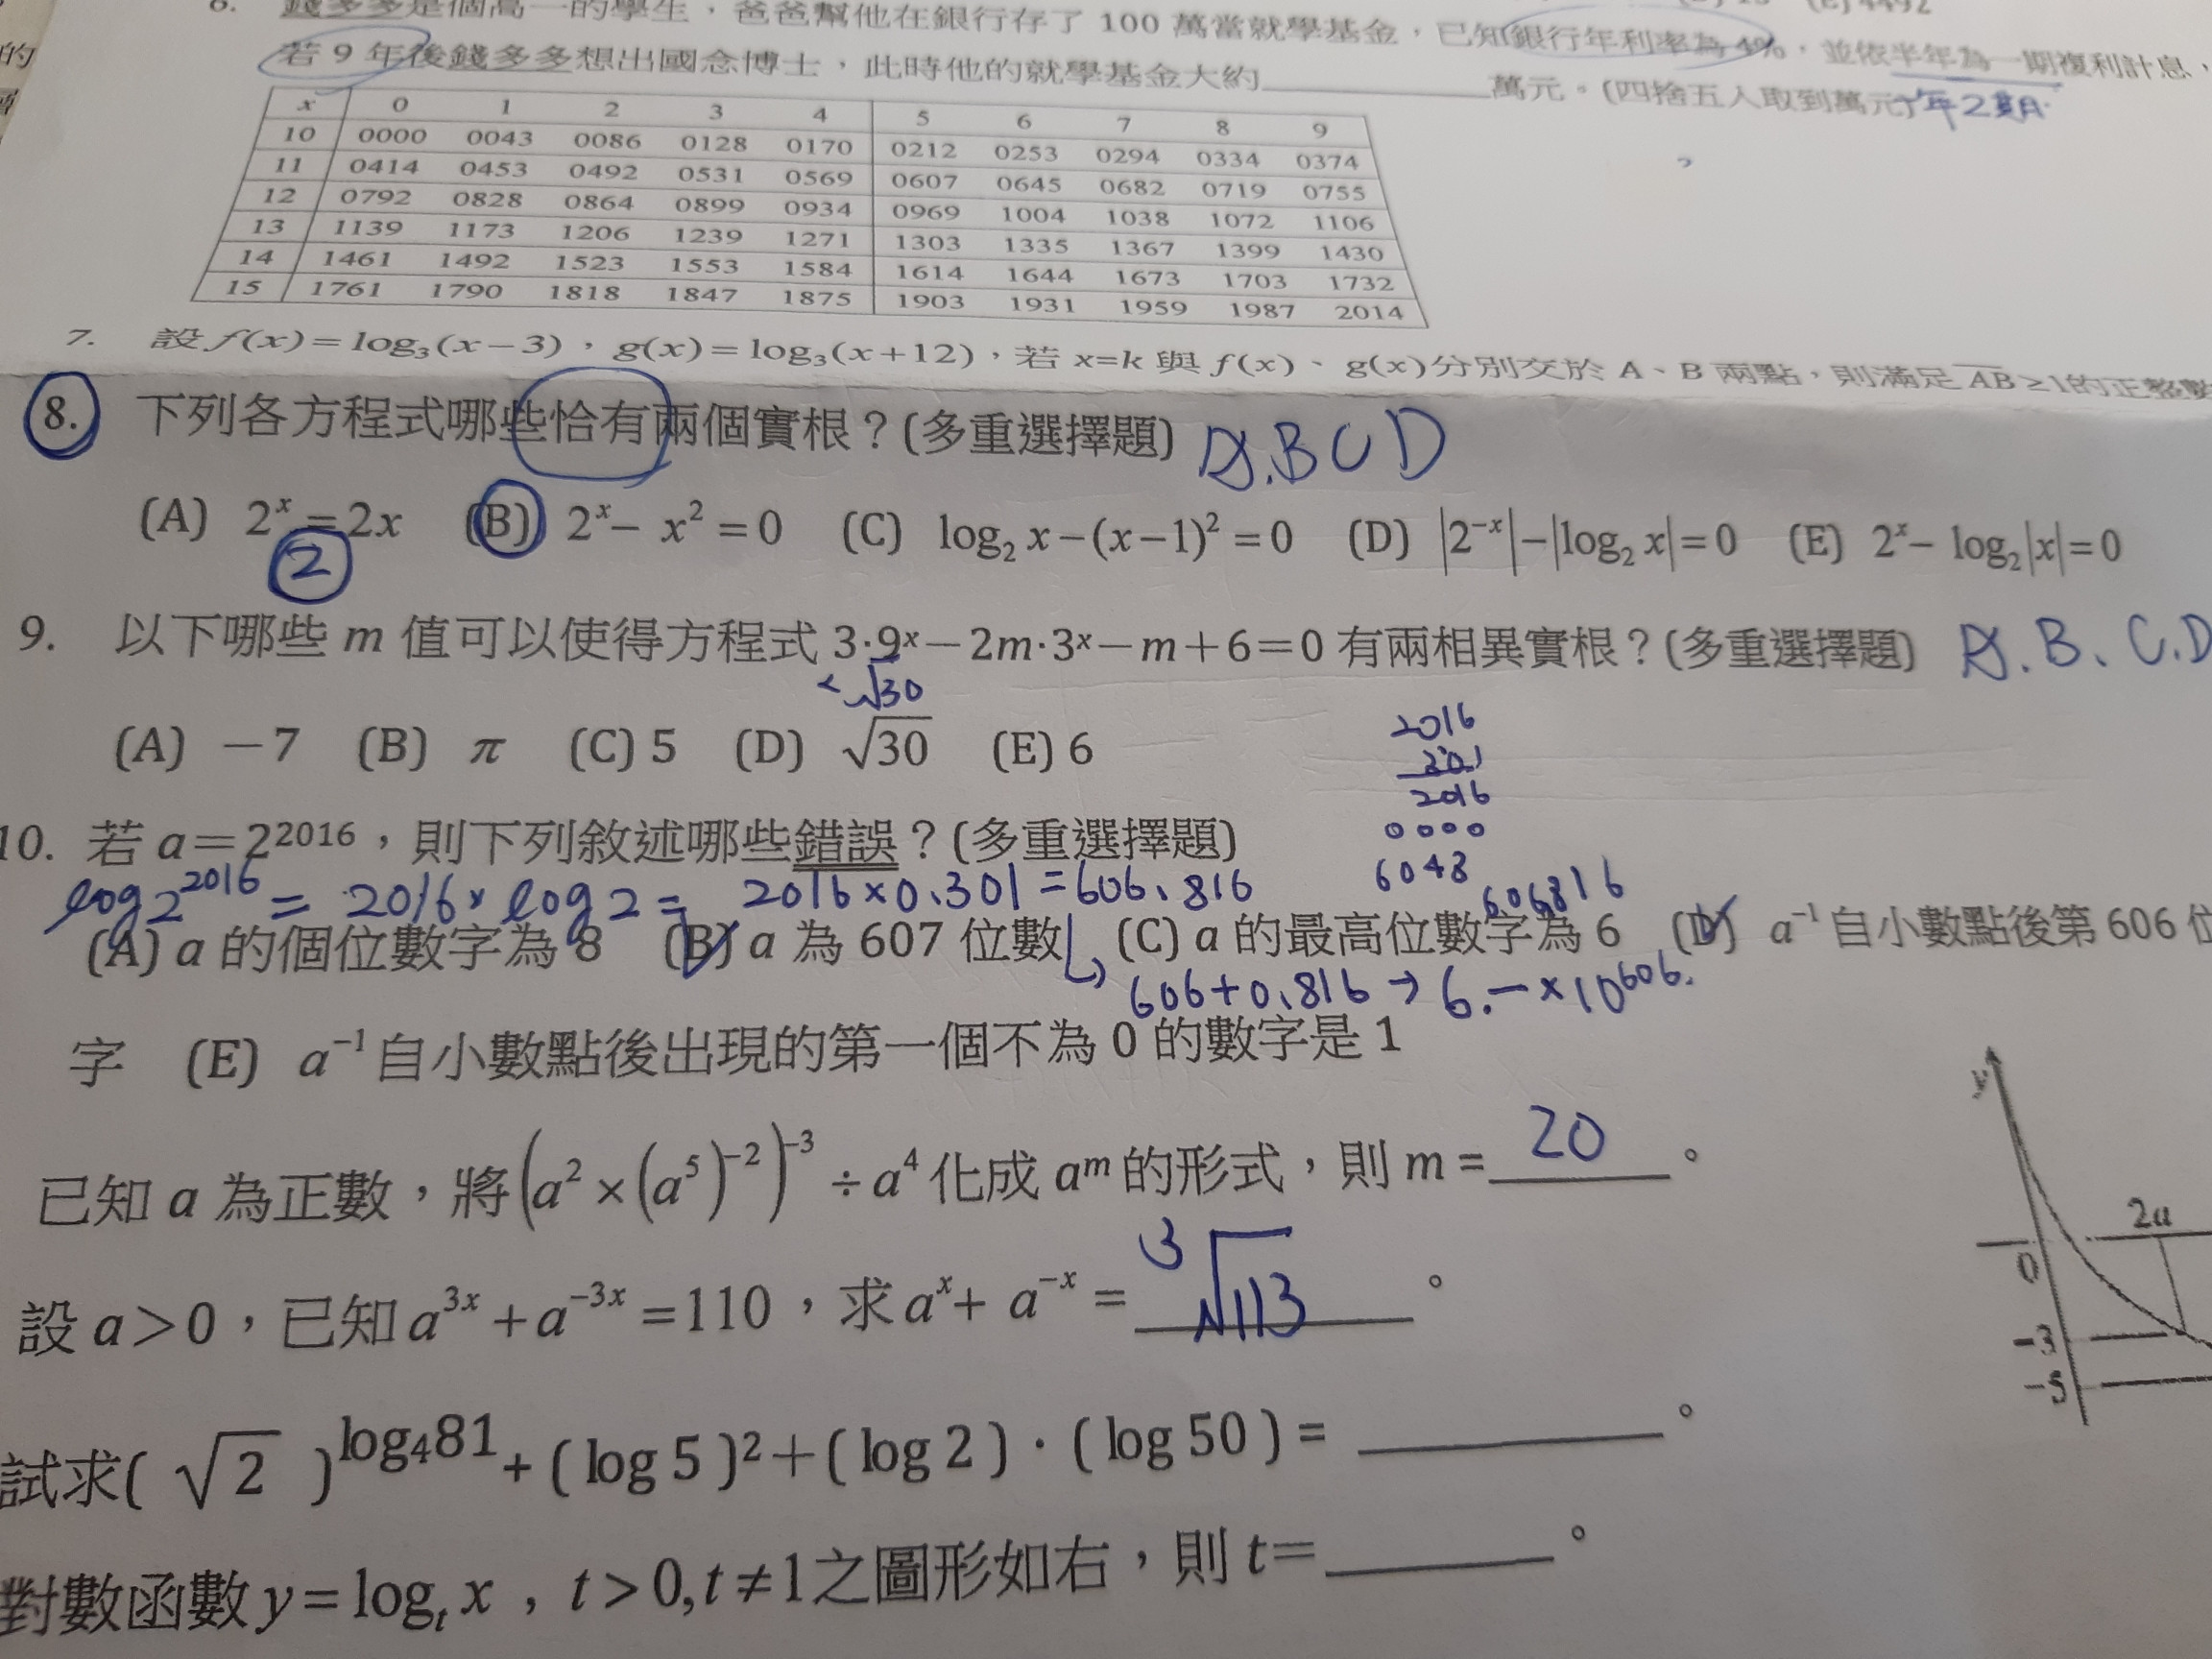 的
6. 錢多多是個高一的學生，爸爸幫他在銀行存了 100 萬當就學基金，已知銀行年利率為 4%，並依半年為一期複利計息，
若 9 年後錢多多想出國念博士，此時他的就學基金大約______萬元。(四捨五入取到萬元)
1年2期.
x 0 1 2 3 4 5 6 7 8 9
10 0000 0043 0086 0128 0170 0212 0253 0294 0334 0374
11 0414 0453 0492 0531 0569 0607 0645 0682 0719 0755
12 0792 0828 0864 0899 0934 0969 1004 1038 1072 1106
13 1139 1173 1206 1239 1271 1303 1335 1367 1399 1430
14 1461 1492 1523 1553 1584 1614 1644 1673 1703 1732
15 1761 1790 1818 1847 1875 1903 1931 1959 1987 2014
7. 設 f(x)=log₃(x−3)，g(x)=log₃(x+12)，若 x=k 與 f(x)、g(x)分別交於 A、B 兩點，則滿足 AB ≥1的正整數
8. 下列各方程式哪些恰有兩個實根？(多重選擇題) A.BCD
(A) 2ˣ=2x (B) 2ˣ− x²=0 (C) log₂ x−(x−1)²=0 (D) |2⁻ˣ|−|log₂ x|=0 (E) 2ˣ− log₂|x|=0
2
9. 以下哪些 m 值可以使得方程式 3·9ˣ−2m·3ˣ−m+6=0 有兩相異實根？(多重選擇題) A.B、C.D
<√30
(A) −7 (B) π (C) 5 (D) √30 (E) 6
2016
301
2016
0000
6048
606816
10. 若 a=2²⁰¹⁶，則下列敘述哪些錯誤？(多重選擇題)
log2²⁰¹⁶ = 2016×log2 = 2016×0.301=606.816
(A) a 的個位數字為 8 (B) a 為 607 位數 (C) a 的最高位數字為 6 (D) a⁻¹自小數點後第 606 位
606+0.816→6.—×10⁶⁰⁶.
字 (E) a⁻¹自小數點後出現的第一個不為 0 的數字是 1
已知 a 為正數，將(a²×(a⁵)⁻²)⁻³÷a⁴化成 aᵐ的形式，則 m=20。
設 a>0，已知a³ˣ+a⁻³ˣ=110，求aˣ+ a⁻ˣ=³√113。
試求( √2 )^log₄81+(log 5)²+(log 2)·(log 50)=______。
對數函數 y=logₜ x，t>0,t≠1之圖形如右，則 t=______。
y
2a
0
−3
−5